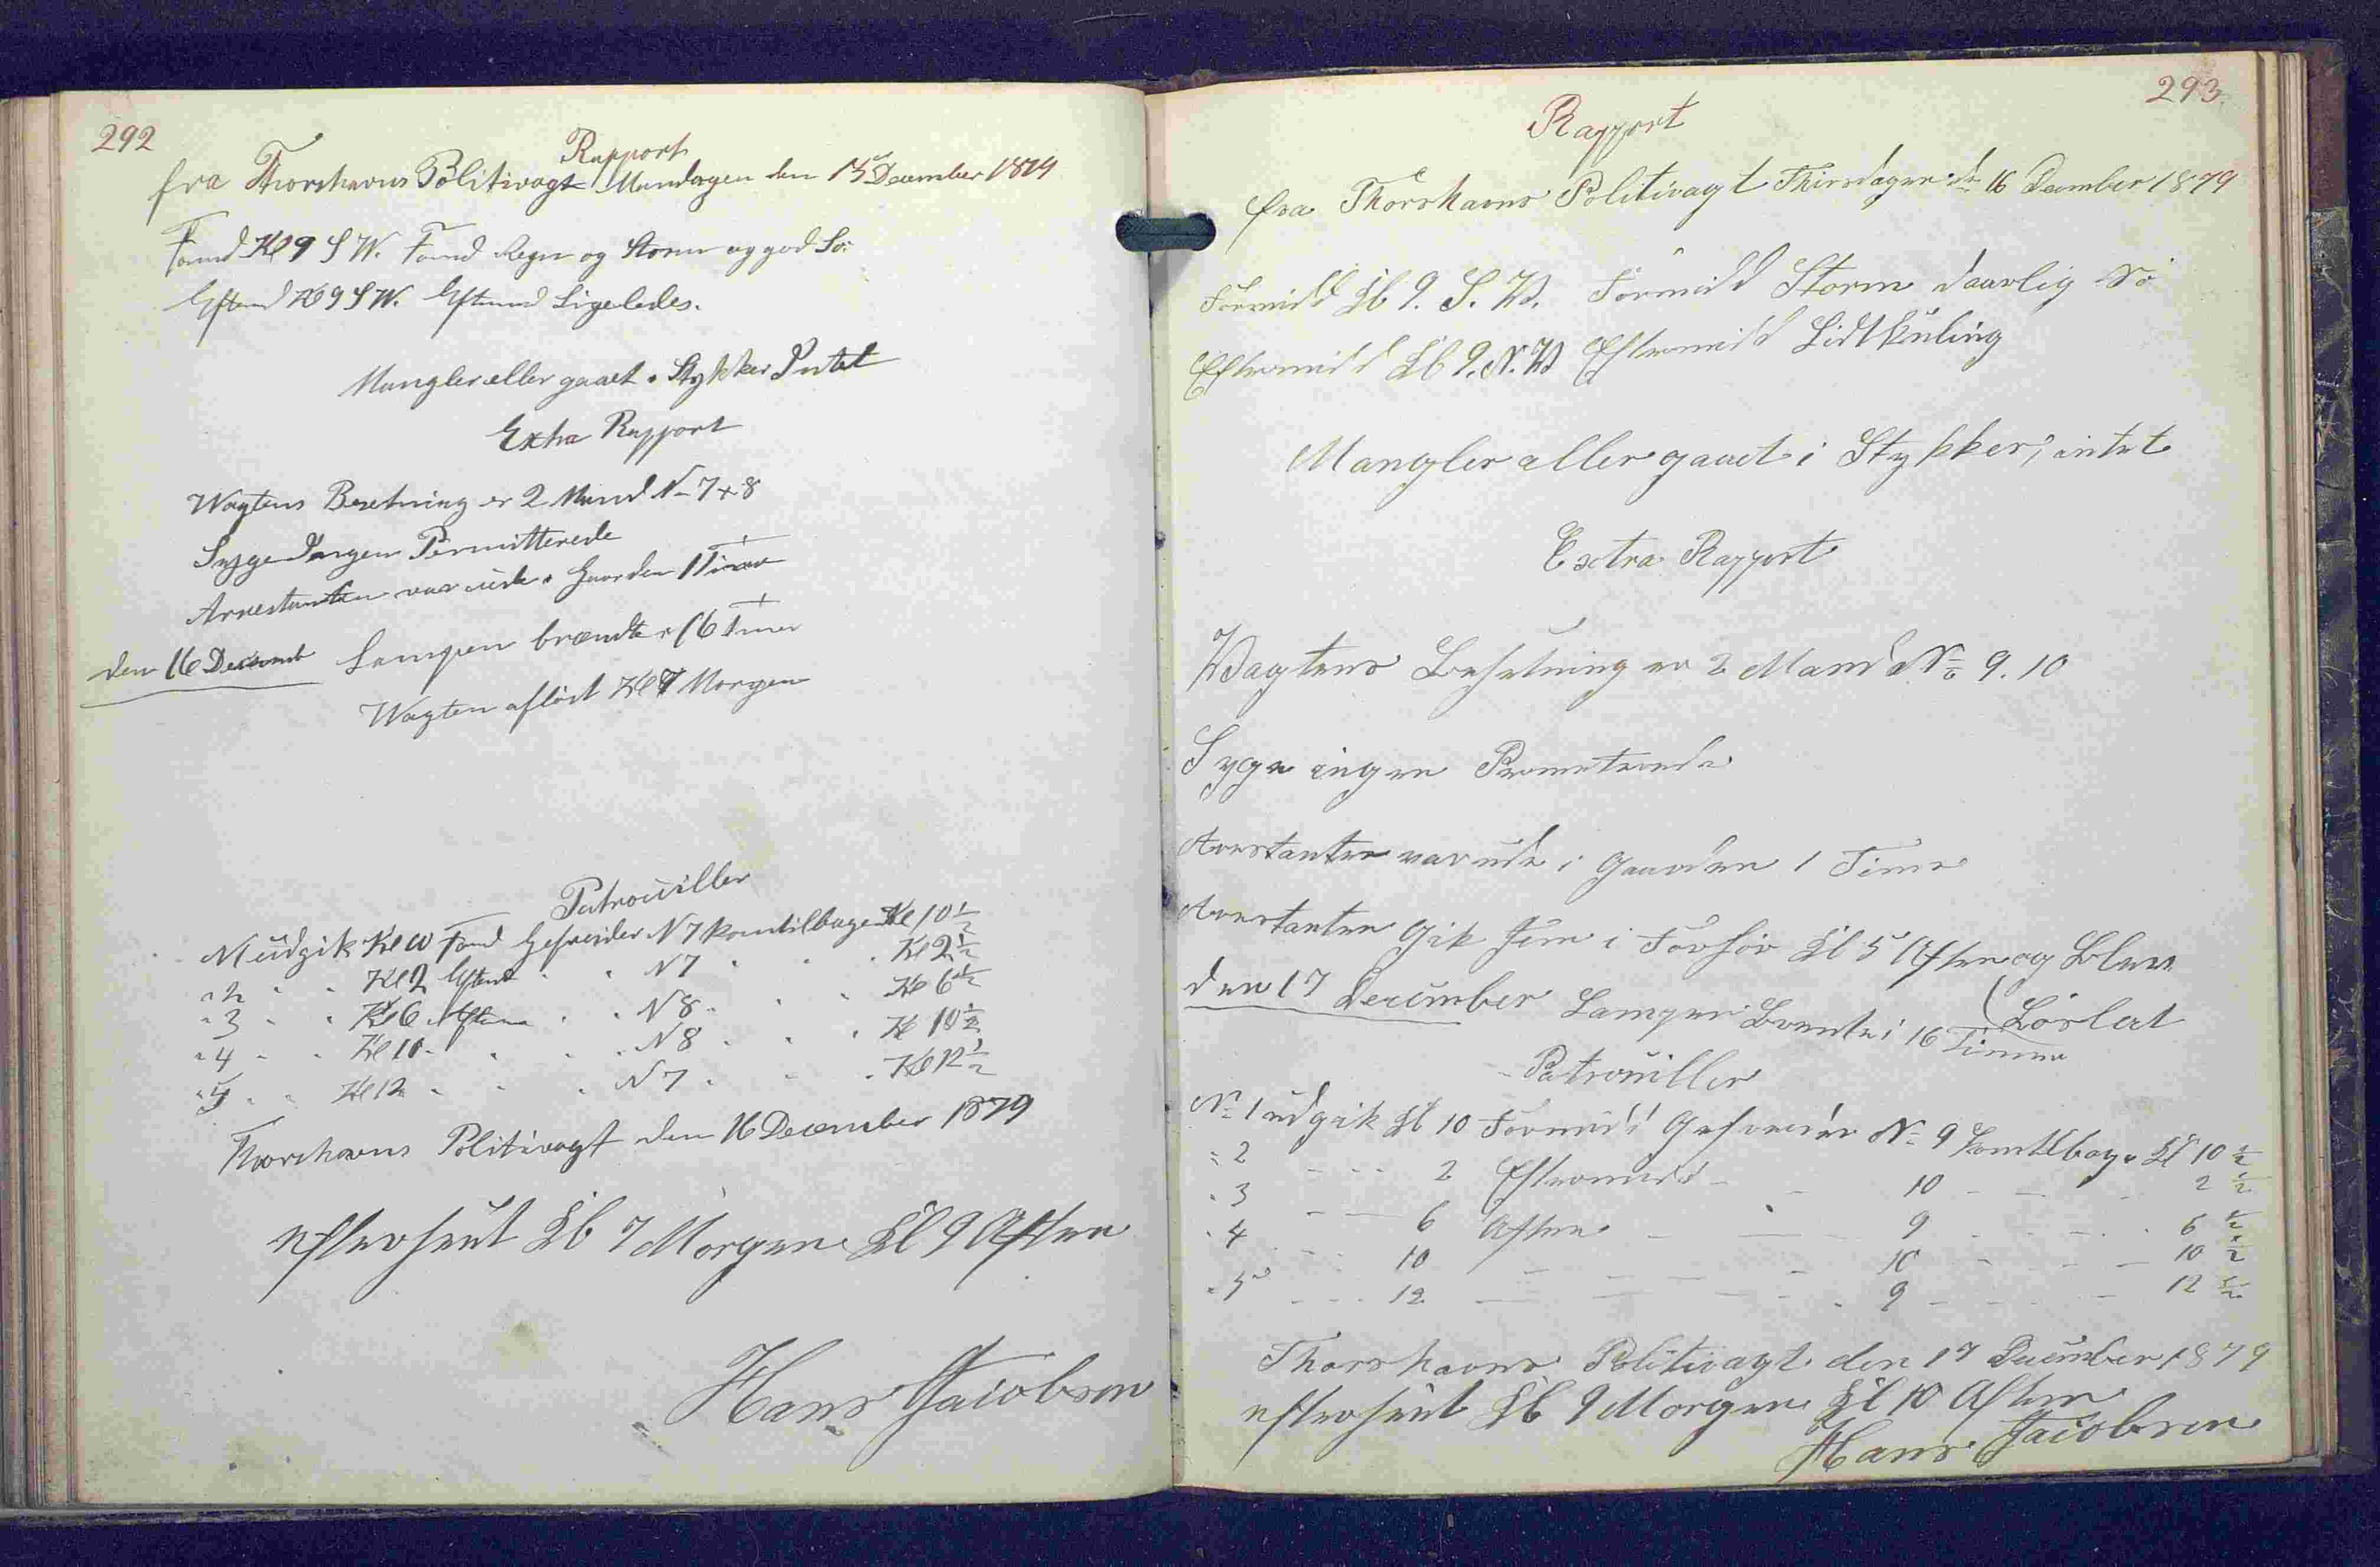 292
Rapport
fra Thorshavns Politivagt Mandagen den 15 December 1879
Formd Kl 9 S W. Formd Regn og Storm og god Sö
Eftmd Kl 9 S W. Eftmd Ligeledes.
Mangler eller gaaet i Stykker Intet
Extra Rapport
Wagtens Besetning er 2 Mand N 7 & 8
Syge Ingen Permitterede
Arrestanten var ude i Gaarden 1 Time
den 16 Decemb Lampen brændte i 16 Timer
Wagten aflöst Kl 7 Morgen
Patrouiller
N 1 udgik Kl 10 Formd Gefreider N 7 kom tilbage Kl 10 1/2
" 2 " " Kl 2 Eftmd " " N 7 " " " Kl 2 1/2
" 3 " " Kl 6 Aften " " N 8 " " " Kl 6 1/2
" 4 " " Kl 10 " " " N 8 " " " Kl 10 1/2
" 5 " " Kl 12 " " " N 7 " " " Kl 12 1/2
Thorshavns Politivagt den 16 December 1879
efterseet Kl 7 Morgen Kl 9 Aften
Hans Jacobsen
293
Rapport
fra Thorshavns Politivagt Thirsdagen dn 16 December 1879
Formidd Kl 9. S. W. Formidd Storm daarlig Sö
Eftermidd Kl 9. N. W Eftermidd Lidt Kuling
Mangler eller gaaet i Stykker, intet
Extra Rapport
Wagtens Besetning er 2 Mand No 9. 10
Syge ingen
Arestanten var ude i Gaarden 1 Time
Arestanten Gik frem i Forhör Kl 5 Aften og Blev
Löslat
den 17 December Lampen Brente i 16 Timer
Patrouiller
No 1 udgik Kl 10 Formidd Gefreider No 9 Kom tilbage Kl 10 1/2
" 2 - - - 2 Eftermidd - - 10 - - - 2 1/2
" 3 - - 6 Aften - - 9 - - - 6 1/2
" 4 - - - 10 - - - - 10 - - - 10 1/2
" 5 - - - 12 - - - - 9 - - - 12 1/2
Thorshavns Politivagt den 17 December 1879
efterseet Kl 9 Morgen Kl 10 Aften
Hans Jacobsen